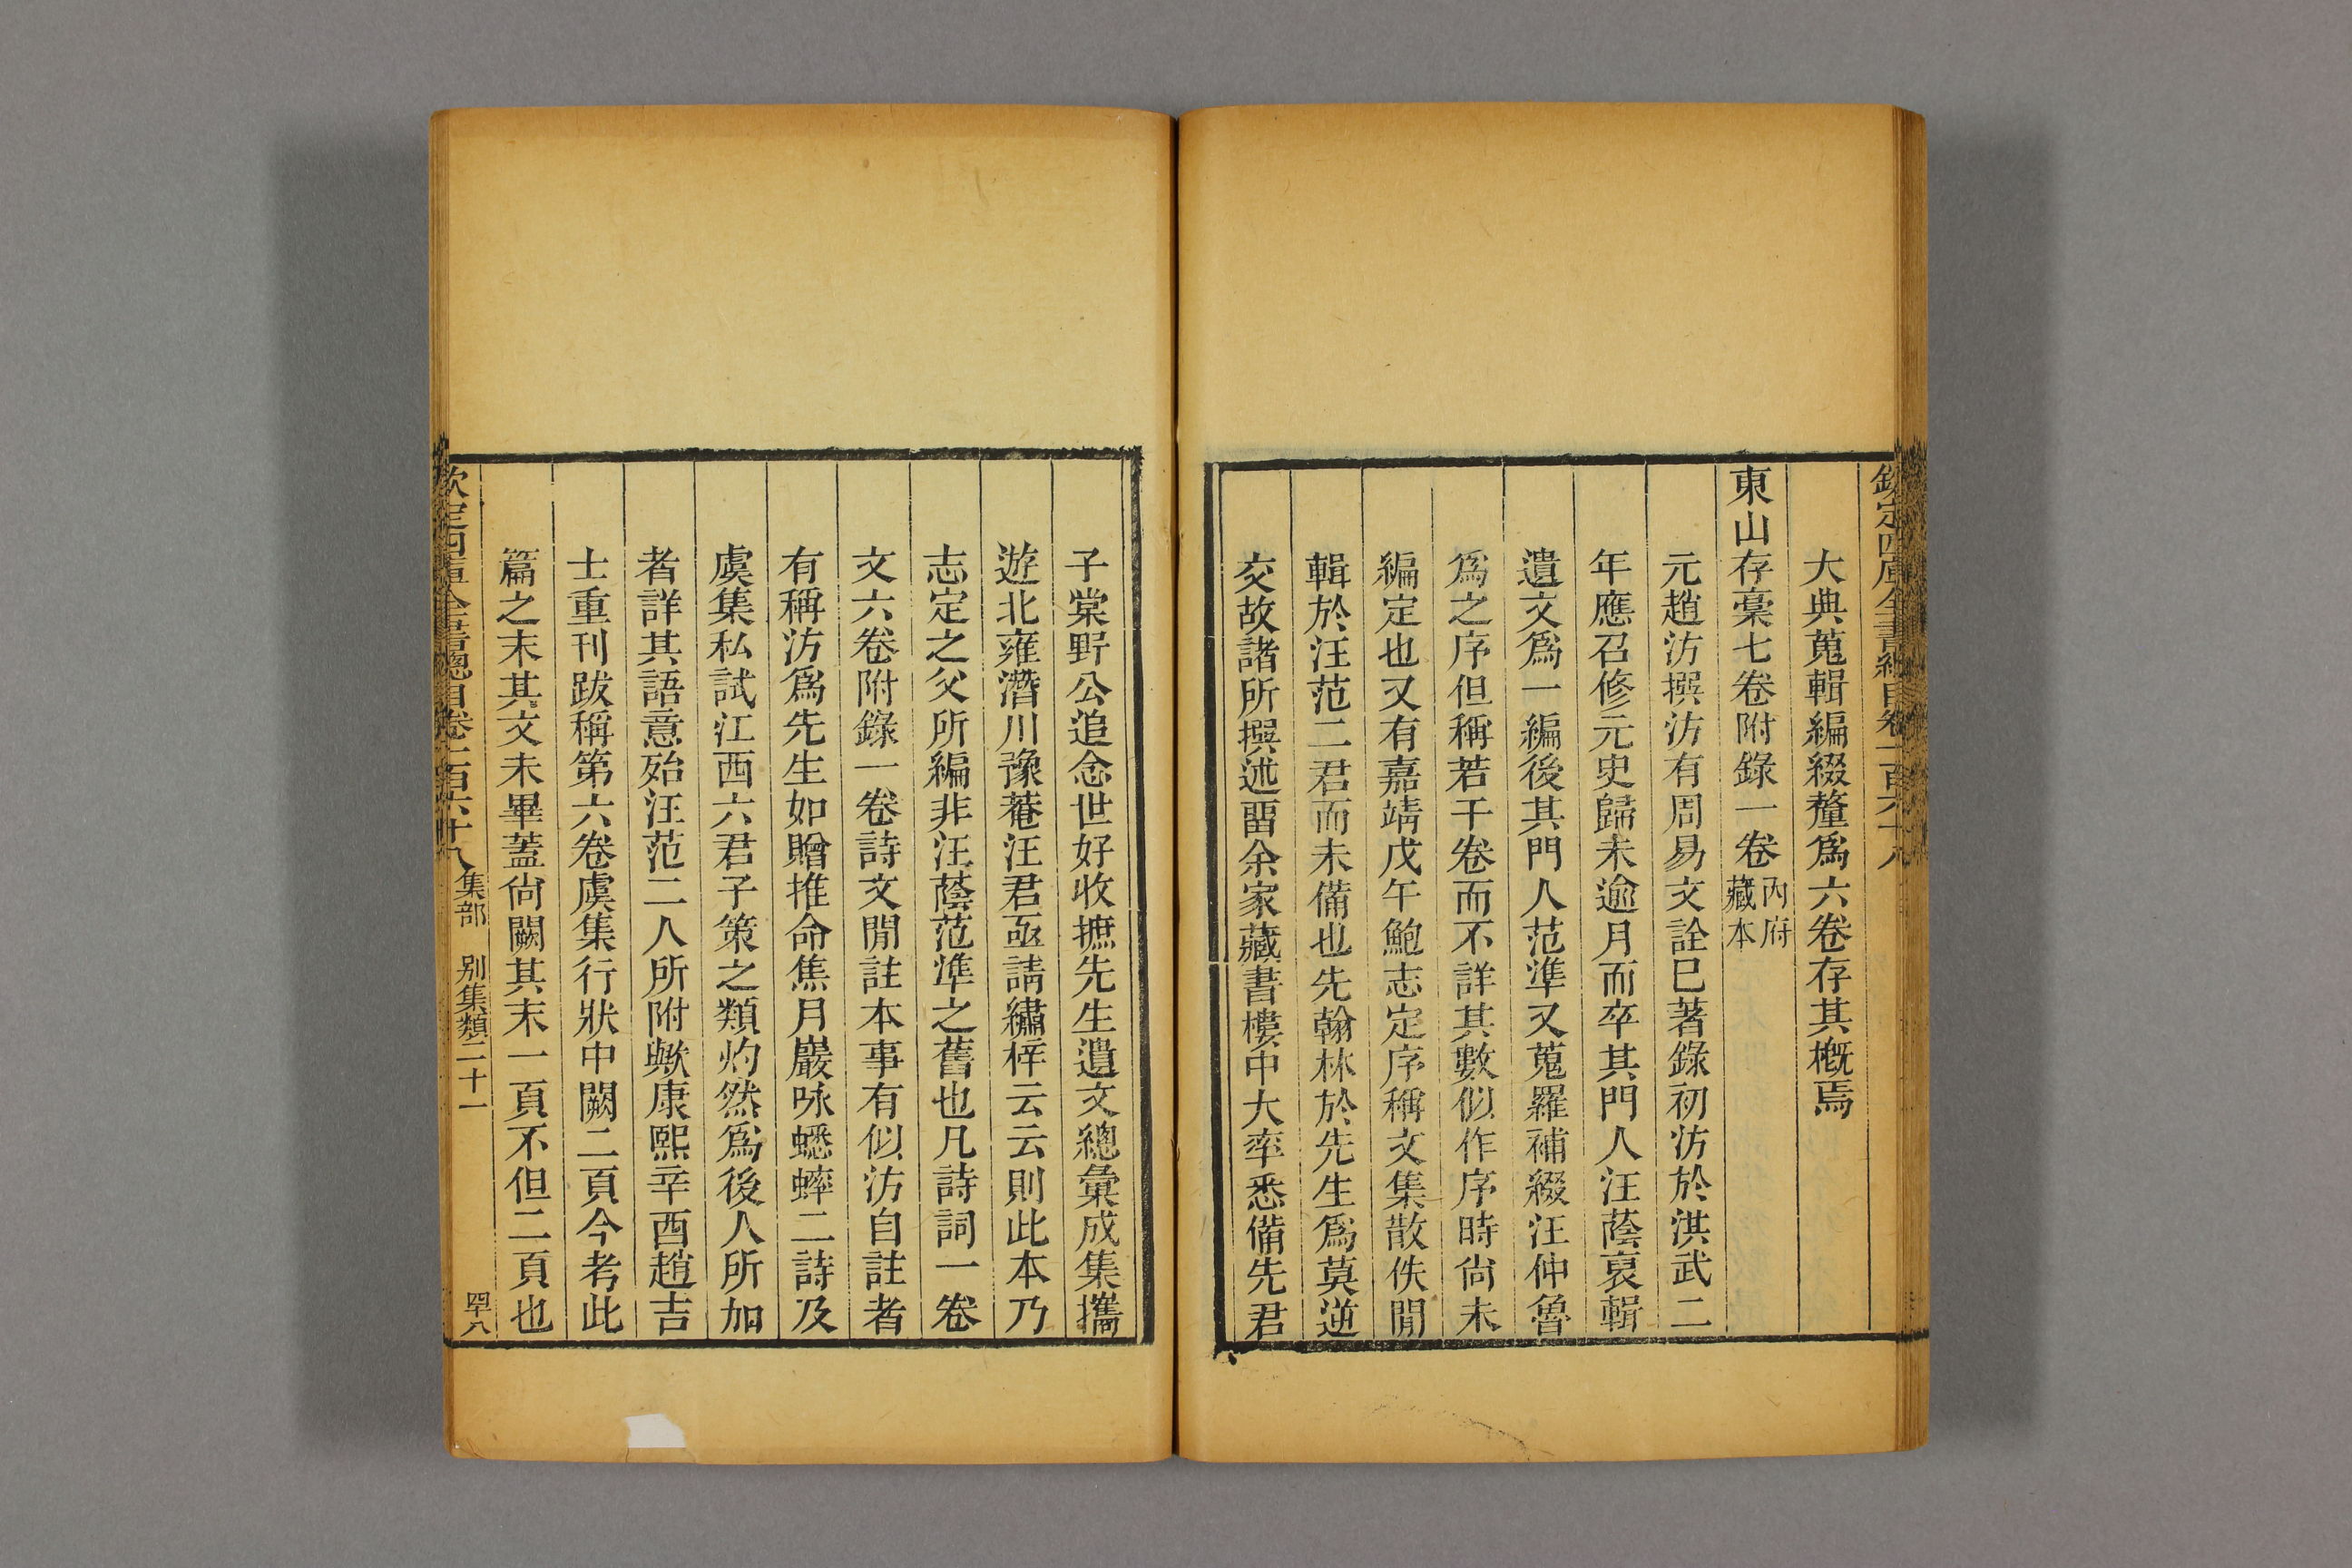 欽定四庫全書總目卷一百六十八
大典蒐輯編綴釐爲六卷存其槪焉
東山存稾七卷附錄一卷內府藏本
元趙汸撰汸有周易文詮已著錄初汸於洪武二
年應召修元史歸未逾月而卒其門人汪蔭裒輯
遺文爲一編後其門人范準又蒐羅補綴汪仲魯
爲之序但稱若干卷而不詳其數似作序時尙未
編定也又有嘉靖戊午鮑志定序稱文集散佚閒
輯於汪范二君而未備也先翰林於先生爲莫逆
交故諸所撰述畱余家藏書樓中大率悉備先君
子棠野公追念世好收摭先生遺文總彙成集攜
遊北雍潛川豫菴汪君亟請繡梓云云則此本乃
志定之父所編非汪蔭范準之舊也凡詩詞一卷
文六卷附錄一卷詩文閒註本事有似汸自註者
有稱汸爲先生如贈推命焦月巖咏蟋蟀二詩及
虞集私試江西六君子策之類灼然爲後人所加
者詳其語意殆汪范二人所附歟康熙辛酉趙吉
士重刊跋稱第六卷虞集行狀中闕二頁今考此
篇之末其文未畢蓋尙闕其末一頁不但二頁也
欽定四庫全書總目卷一百六十八 集部 別集類二十一 四十八